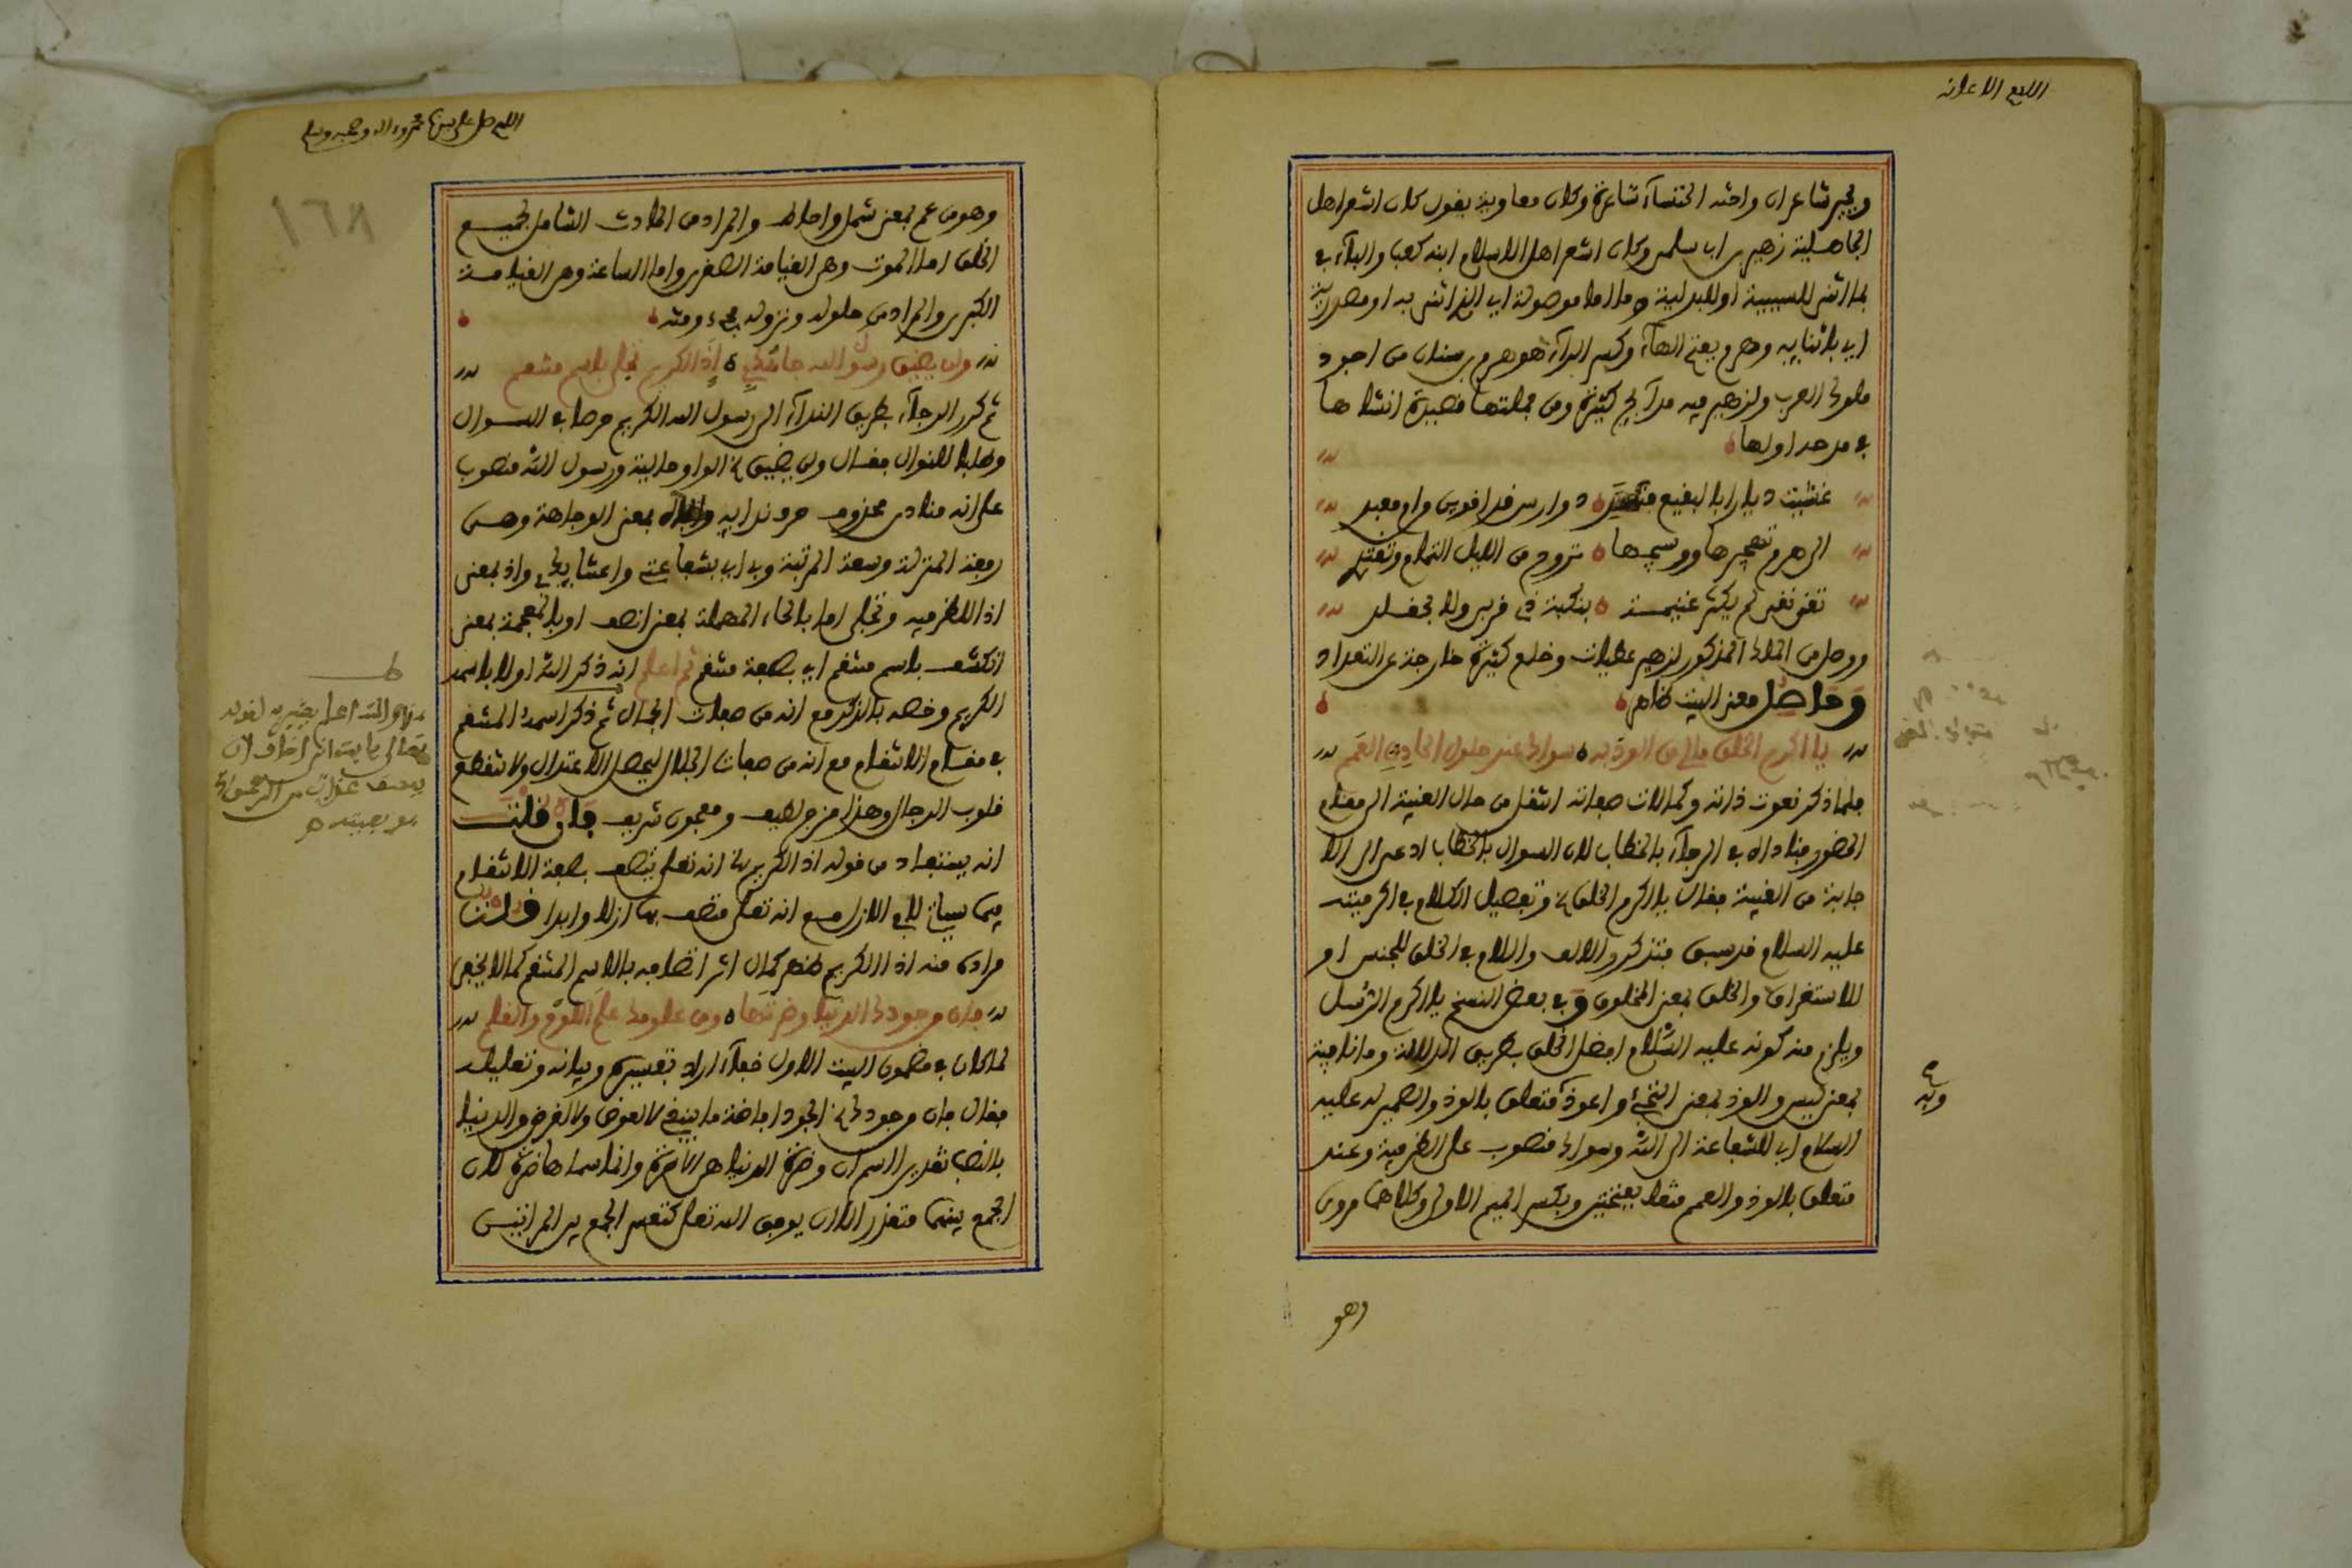 اللهم الاعانة
وبجير شاعران واخته الخنساء شاعرة وكان معاوية يقول كان اشعر اهل
الجاهلية زهير بن ابي سلمى وكان اشعر اهل الاسلام ابنه كعب والباء في
بما اثنى للسببية او للبدلية وما اما موصولة اي الذي اثنى به او مصدرية
اي باثنايه وهرم بفتح الهاء وكسر الراء هو هرم بن سنان من اجود
ملوك العرب ولزهير فيه مدايح كثيرة ومن جملتها قصيدة انشاها
في مدحه اولها
غشيت ديارا بالبقيع دوارس قد اقوين من ام معبد
الى هرم تهجيرها ووسيجها تروح من الليل التمام وتغتدي
تقي نقي لم يكثر غنيمة بنكهة ذي قربى ولا بحقلد
ووصل من الملك المذكور لزهير عطيات وخلع كثيرة خارجة عن التعداد
وحاصل معنى البيت ظاهر
يا اكرم الخلق مالي من الوذ به سواك عند حلول الحادث العمم
فلما ذكر نعوت ذاته وكمالات صفاته انتقل من حال الغيبة الى مقام
الحضور فناداه في الرجاء بالخطاب لان السوال بالخطاب ادعى الى الا
جابة من الغيبة فقال يا اكرم الخلق الخ وتفصيل الكلام في اكرميته
عليه السلام قد سبق فتذكر والالف واللام في الخلق للجنس او
للاستغراق والخلق بمعنى المخلوق وفي بعض النسخ يا اكرم الرسل
ويلزم منه كونه عليه السلام افضل الخلق بطريق الدلالة وما نافية
بمعنى ليس والوذ بمعنى التجئ واعوذ متعلق بالوذ والضمير له عليه
وبه
السلام اي للشفاعة الى الله وسواك منصوب على الظرفية وعند
متعلق بالوذ والعمم مثقلا بفتحتين وبكسر الميم الاولى وكلاهما مروى
وهو
اللهم صل على سيدنا محمد واله وصحبه وسلم
١٦٨
وهو من عم بمعنى شمل واحاط والمراد من الحادث الشامل لجميع
الخلق اما الموت وهي القيامة الصغرى واما الساعة وهي القيامة
الكبرى والمراد من حلوله ونزوله مجيء وقته
ولن يضيق رسول الله جاهك بي اذا الكريم تجلى باسم منتقم
ثم كرر الرجاء بطريق النداء الى رسول الله الكريم حرصا في السوال
وطلبا للنوال فقال ولن يضيق الخ الواو حالية ورسول الله منصوب
على انه منادى محذوف حرف ندايه والجاه بمعنى الوجاهة وهي
رفعة المنزلة وسعة المرتبة وبي اي بشفاعتي واعتنايك بي واذ بمعنى
اذا للظرفية وتحلى اما بالحاء المهملة بمعنى اتصف او بالمعجمة بمعنى
انكشف باسم منتقم اي بصفة منتقم ثم اعلم انه ذكر الله اولا باسمه
الكريم وخصه بالذكر مع انه من صفات الجمال ثم ذكر اسمه المنتقم
في مقام الانتقام مع انه من صفات الجلال ليحصل الاعتدال ولا تنقطع
قلوب الرجال وهذا مزج لطيف ومعجون شريف فان قلت
انه يستفاد من قوله اذا الكريم الخ انه تعلى يتصف بصفة الانتقام
فيما سياتي لا في الازل مع انه تعلى متصف بها ازلا وابدا قلت
مرادي منه اذا الكريم ظهر كمال اثر انتقامه بالاسم المنتقم كما لا يخفى
فان من جودك الدنيا وضرتها ومن علومك علم اللوح والقلم
لما كان في مضمون البيت الاول خفاء اراد تفسيره وبيانه وتعليله
فقال فان من جودك الخ الجود افاضة ما ينبغي لا لعوض ولا لغرض والدنيا
بالنصب تقديرا اسم ان وضرة الدنيا هي الاخرة وانما سماها ضرة لان
الجمع بينهما متعذر الا ان يوفق الله تعلى كتعسر الجمع بين المراتين